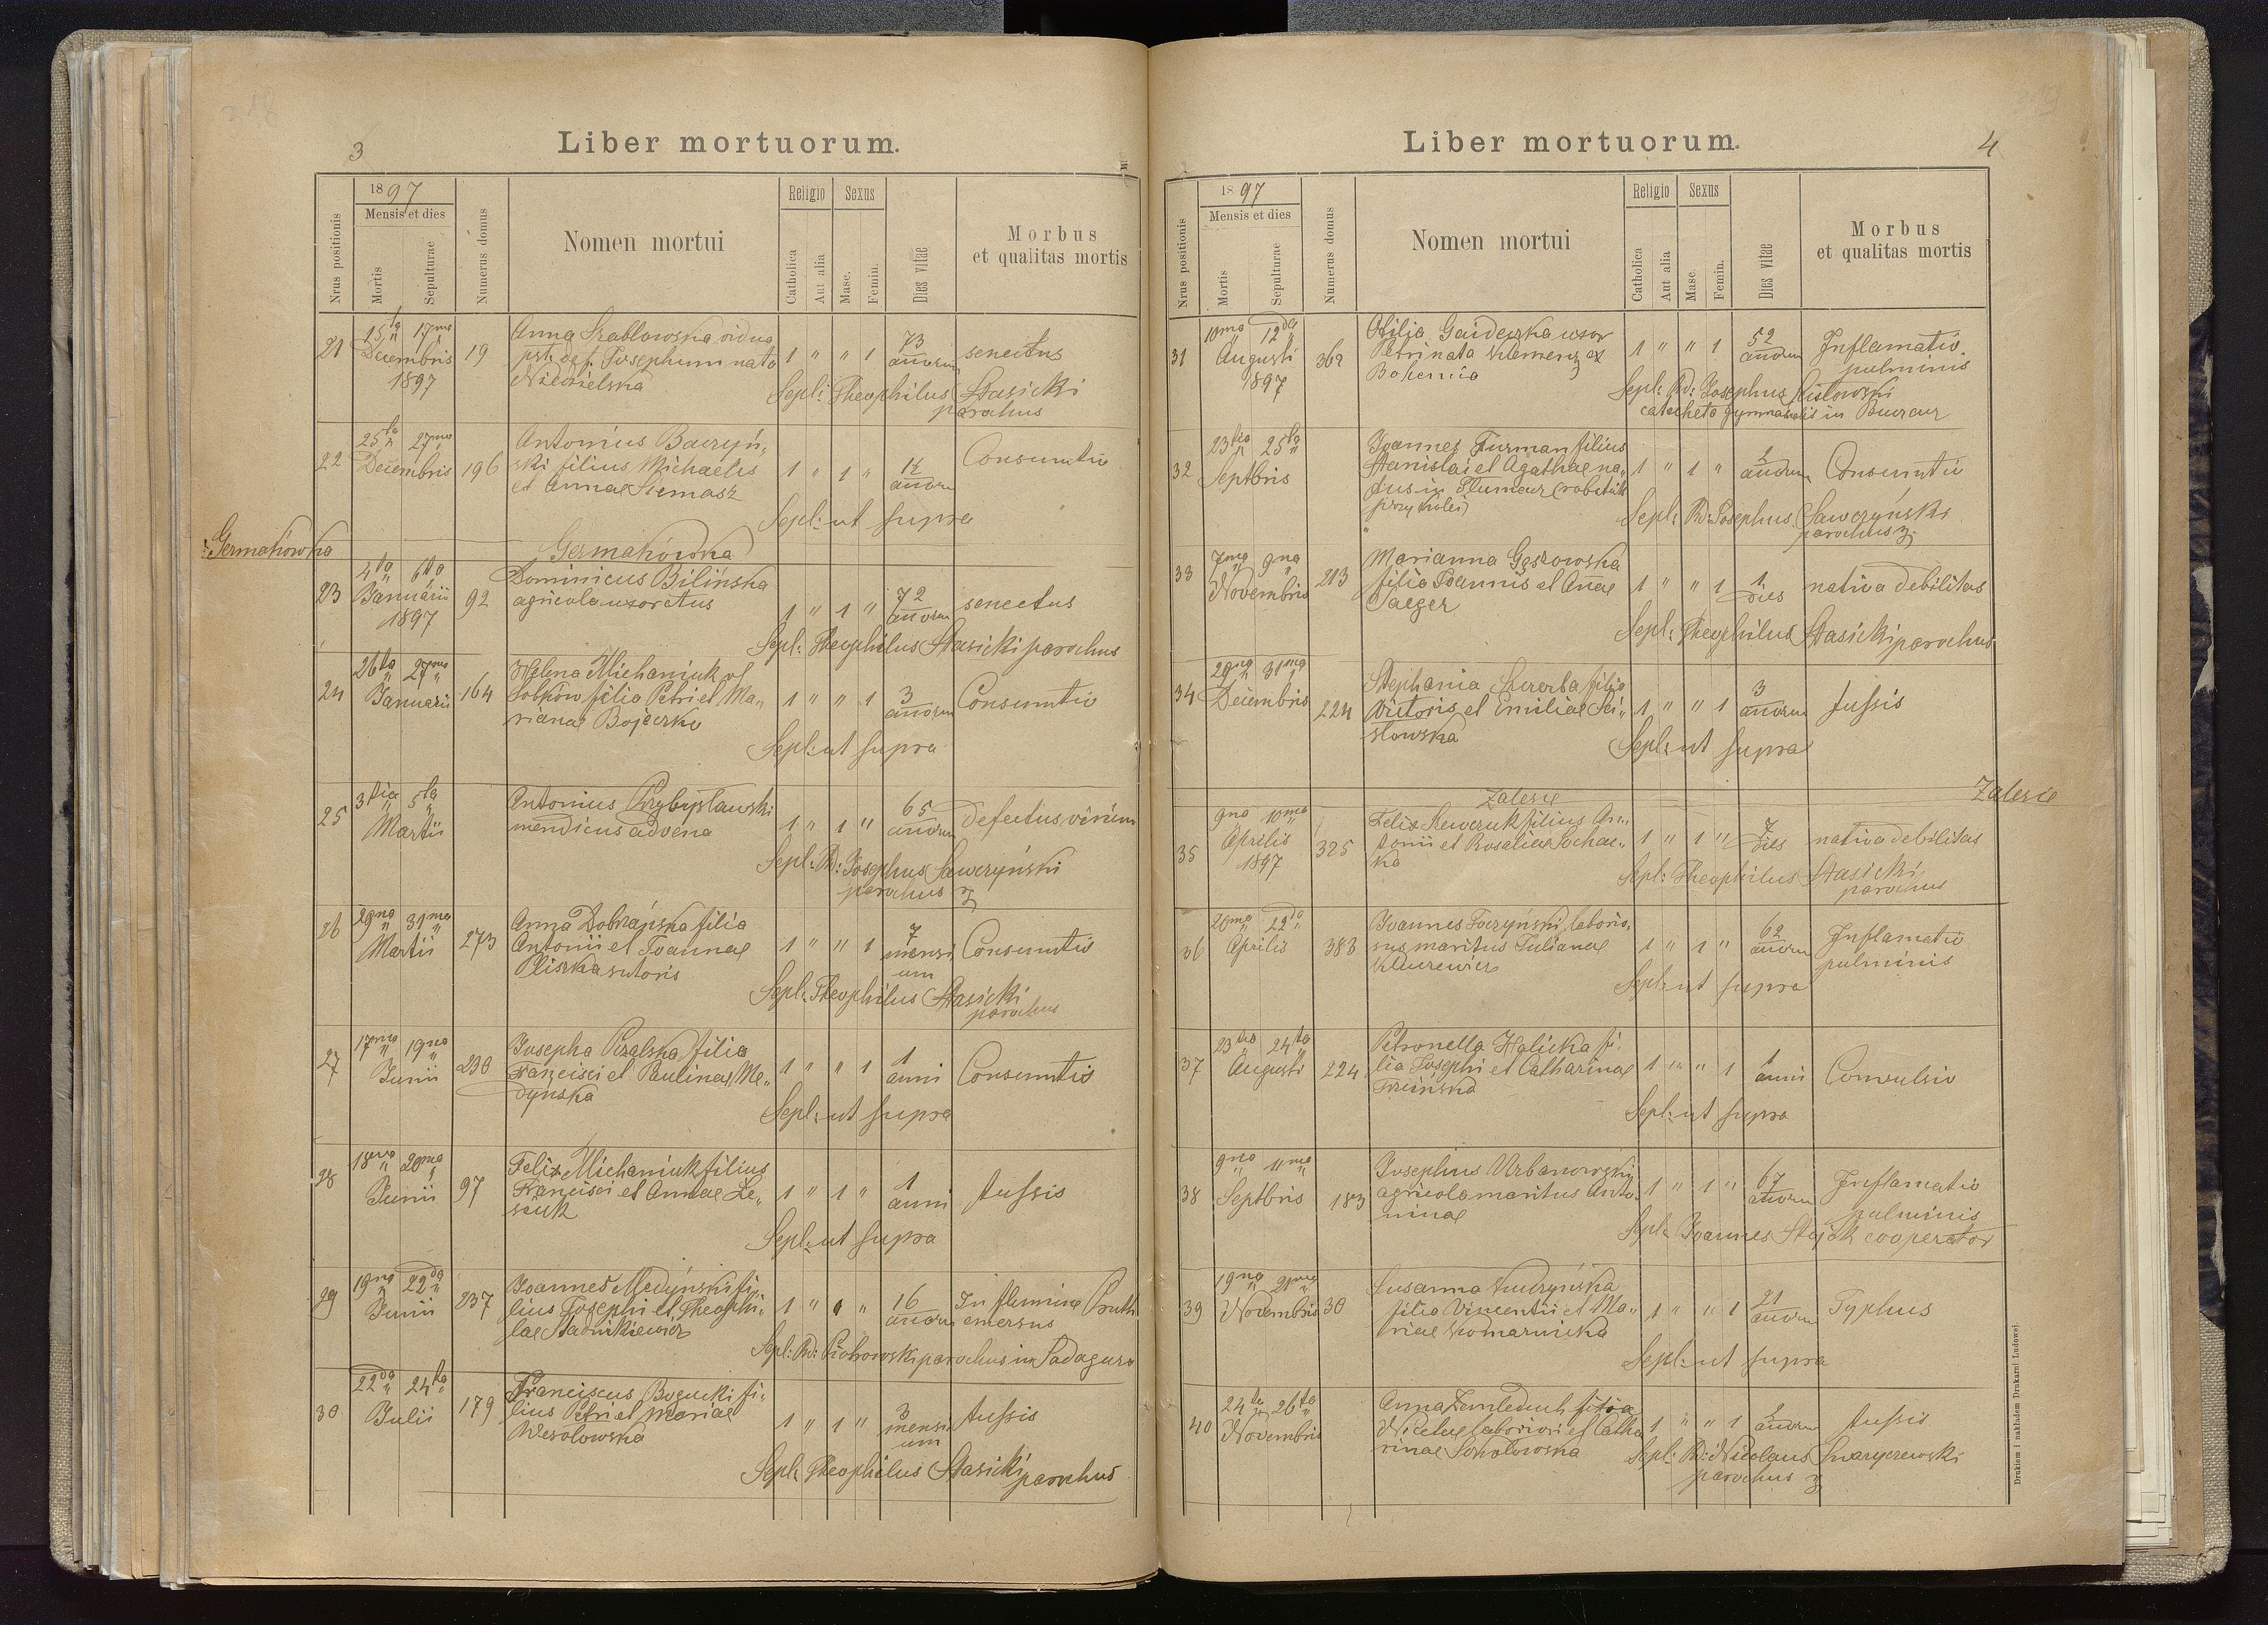 3
Liber mortuorum.
Nrus positionis
1897
Mensis et dies
Mortis
Sepulturae
Numerus domus
Nomen mortui
Religio
Catholica
Aut alia
Sexus
Masc.
Femin.
Dies vitae
Morbus
et qualitas mortis
21
15ta 17ma
Decembris
1897
19
Anna Szablowska vidua
post def. Josephum nata
Niedzielska
1 " " 1
73
annorum
senectus
Sepl: Theophilus Stasicki
parochus
22
25ta 27ma
Decembris
196
Antonius Baczyń„
ski filius Michaelis
et Annae Siemasz
1 " 1 "
annorum
Consumtio
Sepl: ut supra
Germakówka
Germakówka
23
4ta 6ta
Januarii
1897
92
Dominicus Bilińska
agricola uxoratus
1 " 1 "
72
annorum
senectus
Sepl: Theophilus Stasicki parochus
24
26ta 27ma
Januarii
164
Helena Michaniuk vel
Sobków filia Petri et Ma„
rianae Bojeczko
1 " " 1
3
annorum
Consumtio
Sepl: ut supra
25
3tia 5ta
Martii
Antonius Przybysławski
mendicus advena
1 " 1 "
65
annorum
defectus virium
Sepl: Rd: Josephus Sawczyński
parochus
26
29na 31ma
Martii
273
Anna Dobrańska filia
Antonii et Joannae
Pliszka sutoris
1 " " 1
7
mensi
um
Consumtio
Sepl: Theophilus Stasicki
parochus
27
17ma 19na
Junii
230
Josepha Pizalska filia
Francisci et Paulinae Me„
dyńska
1 " " 1
1
anni
Consumtio
Sepl: ut supra
28
18va 20ma
Junii
97
Felix Michaniuk filius
Francisci et Annae Le„
szuk
1 " 1 "
1
anni
tussis
Sepl: ut supra
29
19na 22da
Junii
237
Joannes Medyński fi„
lius Josephi et Theophi„
lae Stadnikiewicz
1 " 1 "
16
annorum
In flumine Pruth
emersus
Sepl: Rd: Piotrowski parochus in Sadagura
30
22da 24ta
Julii
179
Franciscus Bogucki fi„
lius Petri et Mariae
Wesolowska
1 " 1 "
3
mensi
um
tussis
Sepl: Theophilus Stasicki parochus
4
Liber mortuorum.
Nrus positionis
1897
Mensis et dies
Mortis
Sepulturae
Numerus domus
Nomen mortui
Religio
Catholica
Aut alia
Sexus
Masc.
Femin.
Dies vitae
Morbus
et qualitas mortis
31
10ma 12da
Augusti
1897
362
Otilia Gaideczka uxor
Petri nata Klemenz ex
Bohemia
1 " " 1
52
annorum
Inflamatio
pulminis
Sepl: Rd: Josephus Kislowski
catecheta gymnasialis in Buczacz
32
23tia 25ta
Septbris
Joannes Furman filius
Stanislai et Agathae na„
tus in Tlumacz (robotnik
przy kolei)
1 " 1 "
2
annorum
Consumtio
Sepl: Rd: Josephus Sawczyński
parochus
33
7ma 9na
Novembris
213
Marianna Gaszowska
filia Joannis et Annae
Jaeger
1 " " 1
1
dies
nativa debilitas
Sepl: Theophilus Stasicki parochus
34
29na 31ma
Decembris
224
Stephania Szczerba filia
Victoris et Emiliae Sci„
slowska
1 " " 1
3
annorum
tussis
Sepl: ut supra
Zalesie
Zalesie
35
9na 10ma
Aprilis
1897
325
Felix Szewczuk filius An„
tonii et Rosaliae Sochac„
ka
1 " 1 "
7
dies
nativa debilitas
Sepl: Theophilus Stasicki
parochus
36
20ma 22da
Aprilis
383
Joannes Toczyński laborio„
sus maritus Julianae
1 " 1 "
62
annorum
Inflamatio
pulminis
Sepl: ut supra
37
23tia 24ta
Augusti
224
Petronella Halicka fi„
lia Josephi et Catharinae
Trzcińska
1 " " 1
1
anni
Convulsio
Sepl: ut supra
38
9na 11ma
Septbris
183
Josephus Urbanowski
agricola maritus Anto„
ninae
1 " 1 "
67
annorum
Inflamatio
pulminis
Sepl: Joannes Stojek cooperator
39
19na 21ma
Novembris
30
Susanna Kudryńska
filia Vincentii et Ma„
riae Komarnicka
1 " " 1
21
annorum
Typhus
Sepl: ut supra
40
24ta 26ta
Novembris
Anna Zemleduch filia
Nicetae laboriosi et Catha
rinae Sokolowska
1 " " 1
2
annorum
tussis
Sepl: Rd: Nicolaus Swaryczewski
parochus
Drukiem i nakładem Drukarni Ludowej.